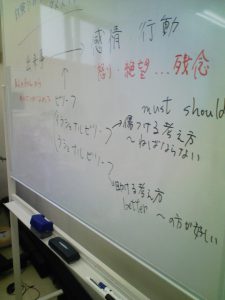 感情 行動
怒り・絶望…残念
出来事
must should
ビリーフ
イラショナルビリーフ→傷つける考え方
～ねばならない
ラショナルビリーフ
助ける考え方
better ～の方が好しい